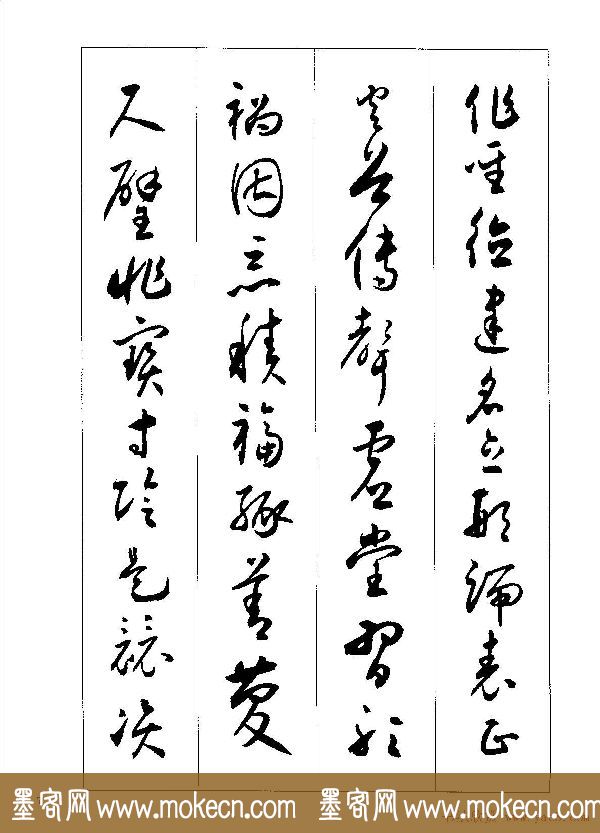 作聖德建名立形端表正
空谷傳聲虛堂習聽
禍因惡積福緣善慶
尺璧非寶寸陰是競資
墨客网 www.mokecn.com 墨客网 www.mokecn.com